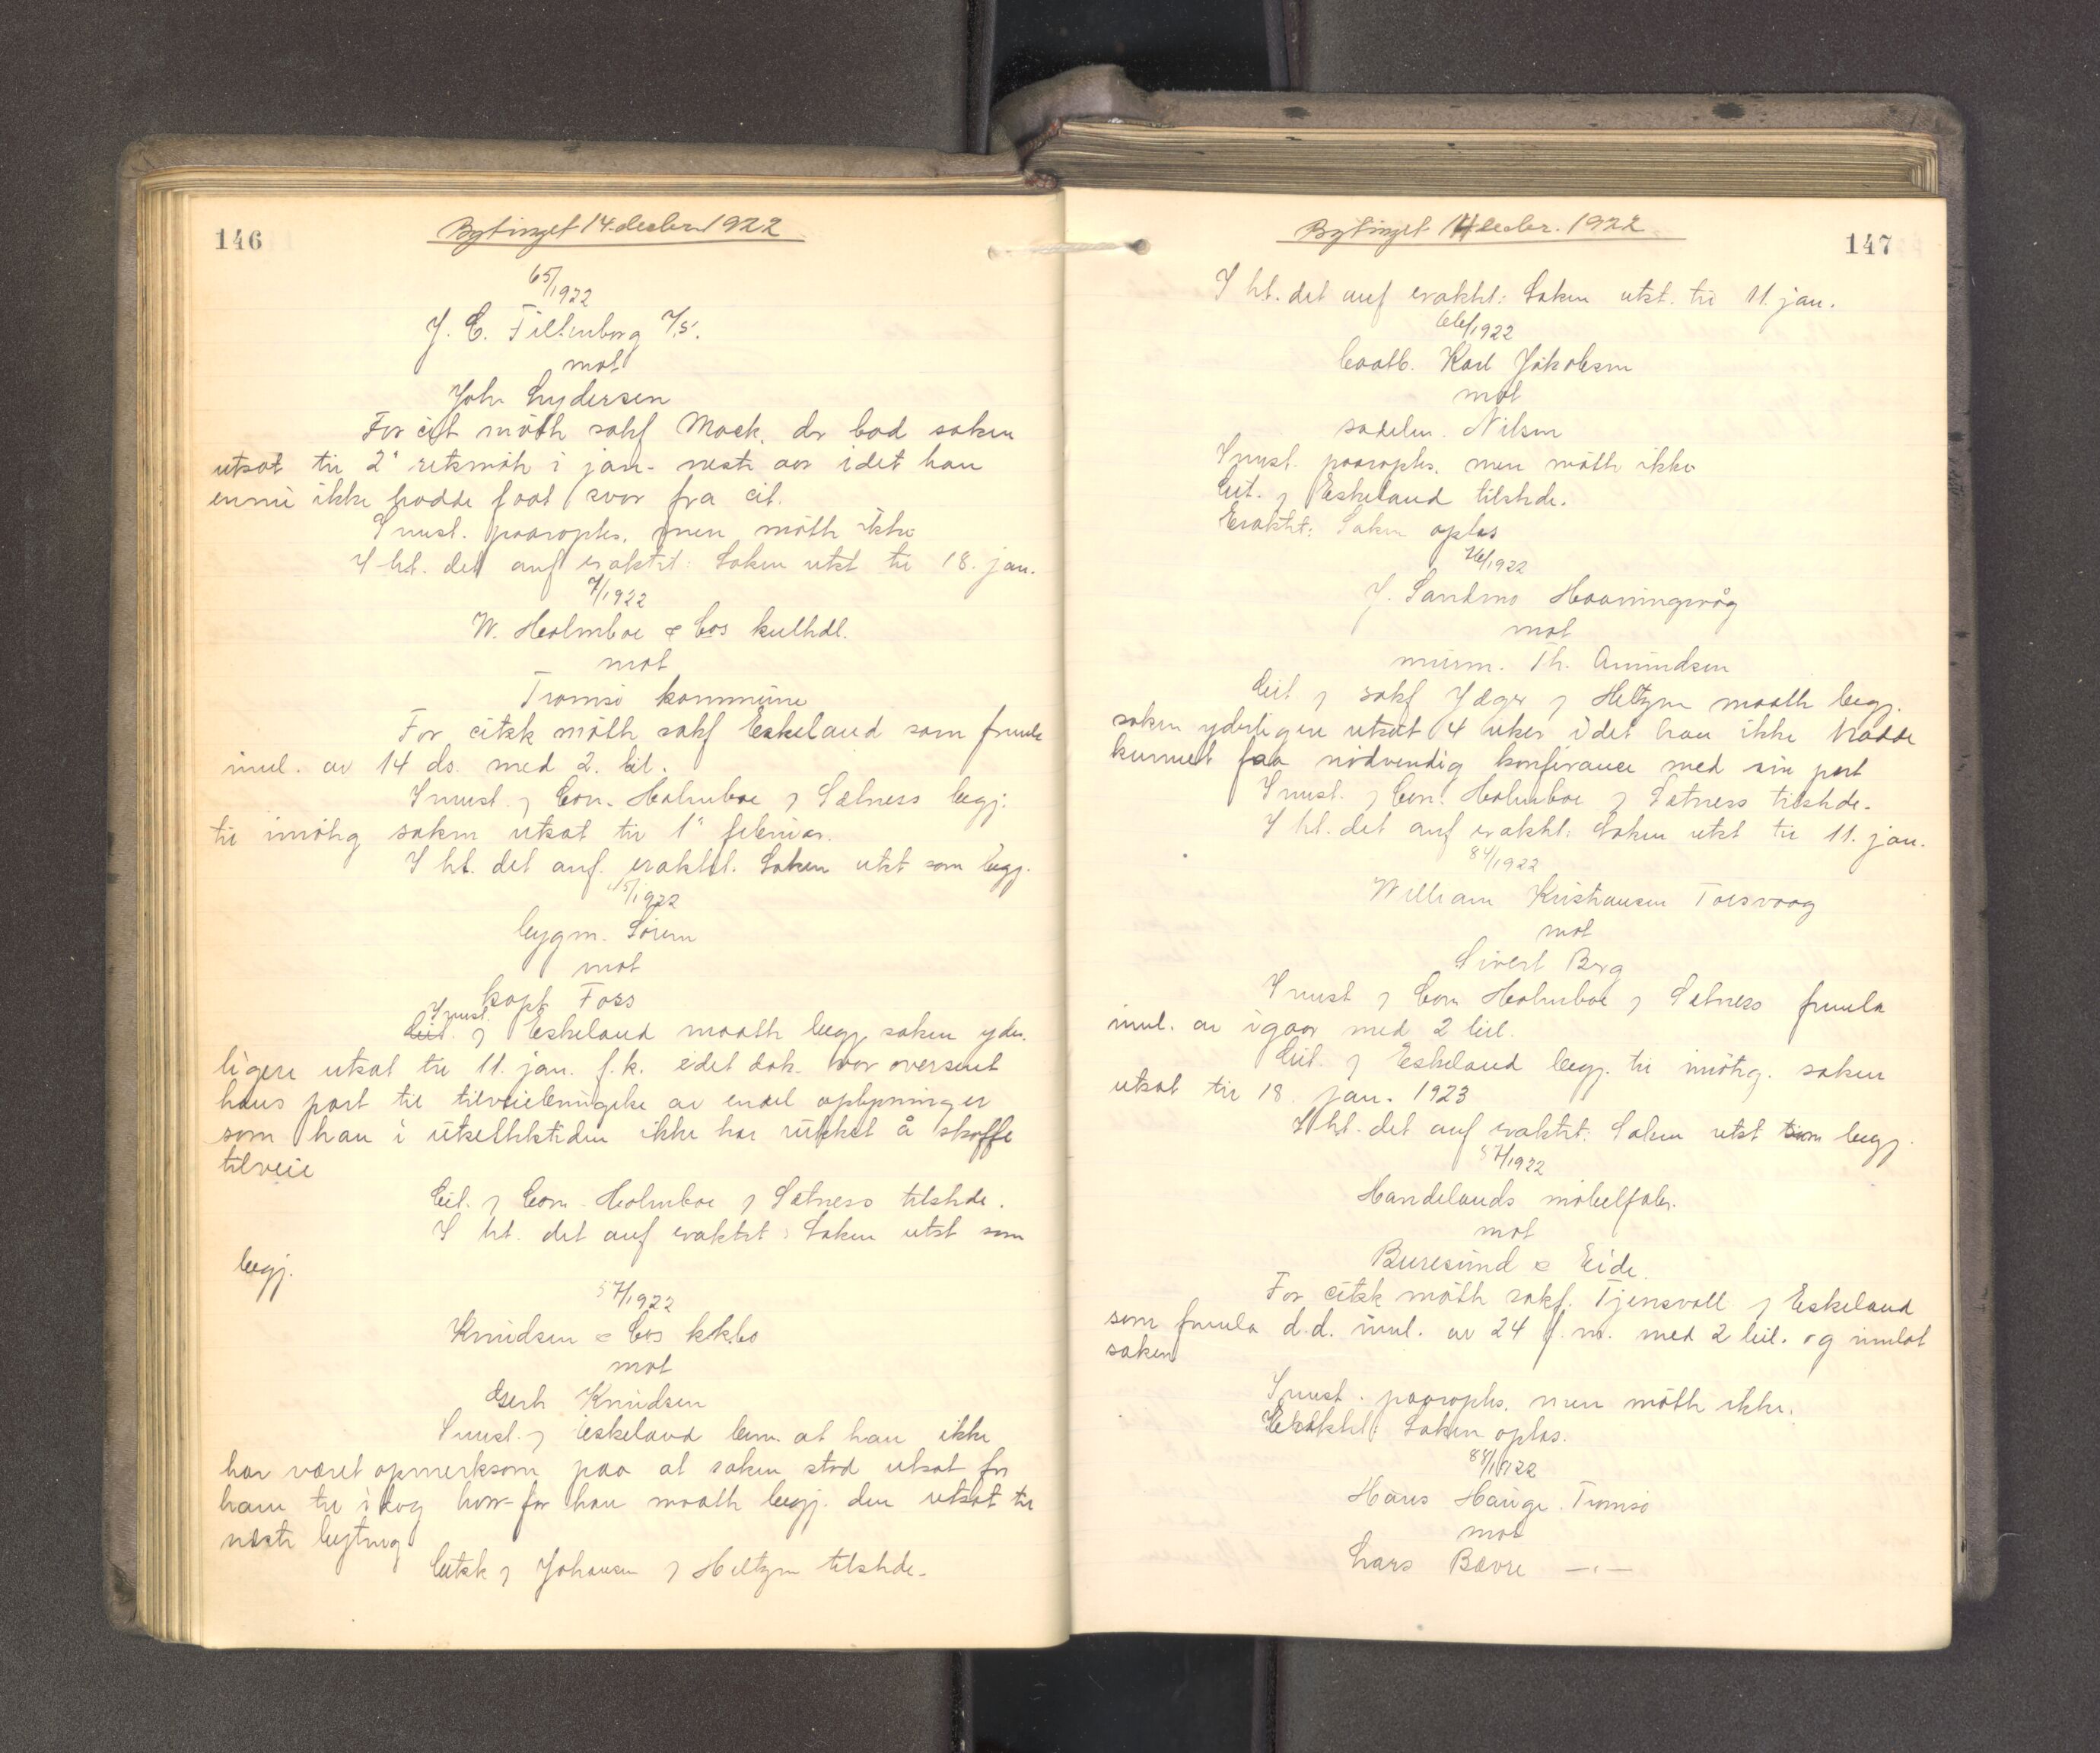 146
Bytinget 14. decbr. 1922
65/1922
J. C. Fillenborg A/S.
mot
Joh. Lydersen
For cit møtte sakf Mack, der bad saken
utsat til 2' retsmøte i jan. neste aar idet han
ennu ikke hadde faat svar fra cit.
Innst. paaroptes, men møtte ikke
I ht. det anf eraktet: Saken utst til 18. jan.
7/1922
W. Holmboe & Cos kulhdl.
mot
Tromsø kommune
For citsk møtte sakf Eskeland som freml
inul. av 14 ds. med 2. bil.
Innst. v Con. Holmboe v Sætness begj.
til imøteg saken utsat til 1' februar.
I ht. det anf. eraktet. Saken utst som begj.
5/1922
bygm. Sørem
mot
kapt Foss
Innst.
v Eskeland maatte begj saken yder-
ligere utsat til 11. jan. f.k. idet dok. var oversent
hans part til tilveiebringelse av endel oplysninger
som han i utsettelstiden ikke har rukket å skaffe
tilveie
Cit. v Con. Holmboe v Sætness tilstede.
I ht. det anf eraktet: Saken utst som
begj.
57/1922
Knudsen & Cos kkbo
mot
Gerh Knudsen
Innst. v Eskeland bem. at han ikke
har været opmerksom paa at saken stod utsat for
ham til idag hvor-for han maatte begj. den utsat til
næste byting
Citsk v Johansen v Heltzen tilstede.
147
Bytinget 14 decbr. 1922
I ht. det anf eraktet: Saken utst. til 11. jan.
66/1922
Karl Jakobsen
mot
sadelm. Nilsen
Innst. paaroptes, men møtte ikke
Cit. v Eskeland tilstede.
Eraktet: Saken optas
76/1922
J. Sandmo Honningsvåg
mot
murm. Th. Amundsen
Cit v sakf Jæger v Heltzen maatte begj.
saken yderligere utsat 4 uker idet han ikke hadde
kunnet faa nødvendig konferance med sin part
Innst. v Con. Holmboe v Sætness tilstede.
I ht. det anf eraktet: Saken utst til 11. jan.
84/1922
William Kristiansen Torsvaag
mot
Sivert Berg
Innst v Con Holmboe v Sætness freml
inul. av igaar med 2 bil.
Cit. v Eskeland begj. til imøtg. saken
utsat til 18. jan. 1923
I ht. det anf eraktet: Saken utst som begj.
57/1922
Handelands møbelfabr.
mot
Buresund & Eide
For citsk møtte sakf. Tjensvoll v Eskeland
som freml d.d. inul. av 24 f.m. med 2 bil. og innlot
saken
Innst. paaroptes, men møtte ikke.
Eraktet: Saken optas.
88/1922
Hans Hauge. Tromsø
mot
Lars Bævre —"—